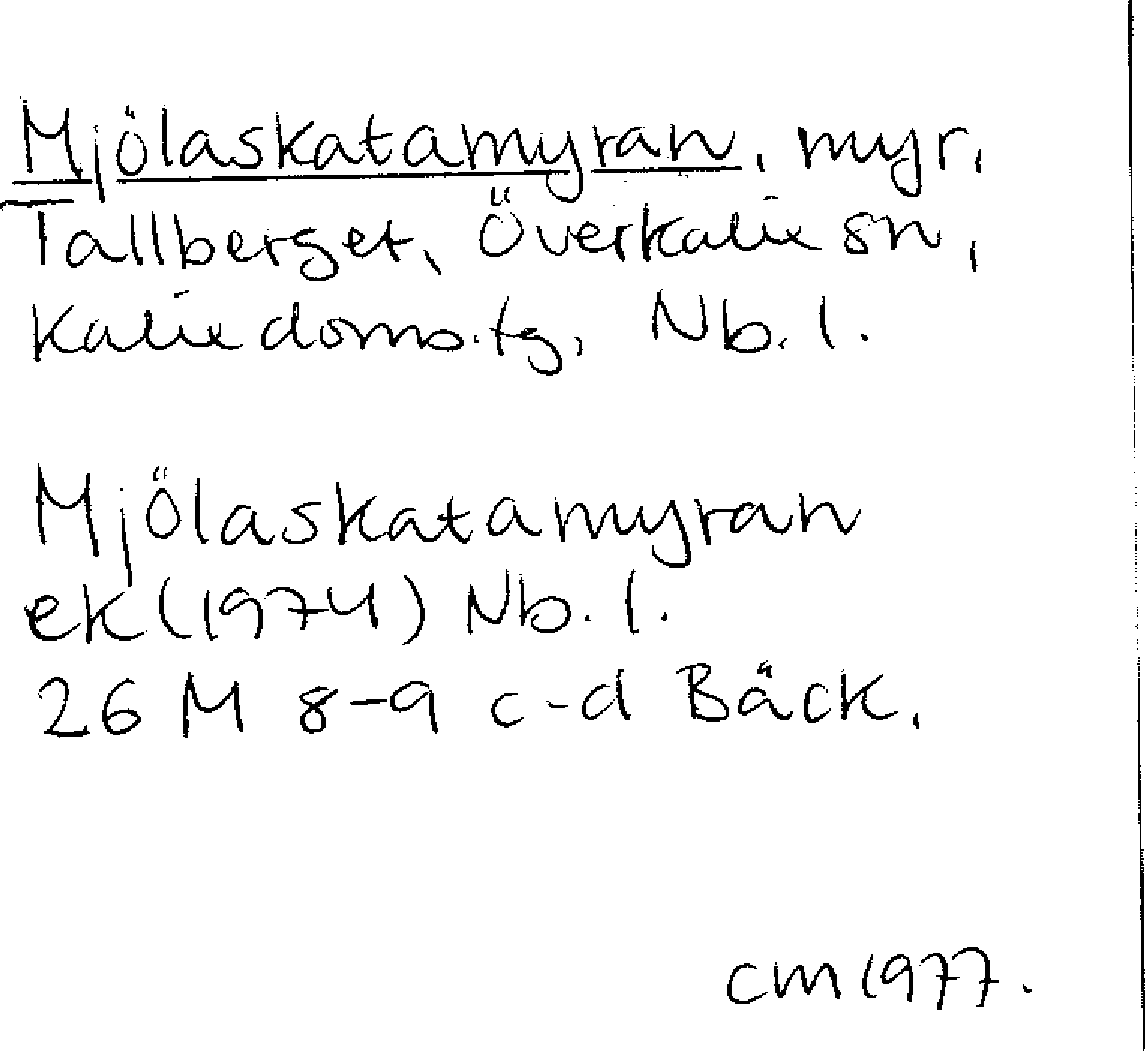 Mjölaskatamyran, myr,
Tallberget, Överkalix sn,
Kalix doms.tg, Nb. l.
Mjölaskatamyran
ek (1974) Nb. l.
26 M 8-9 c-d Bäck.
CM 1977.